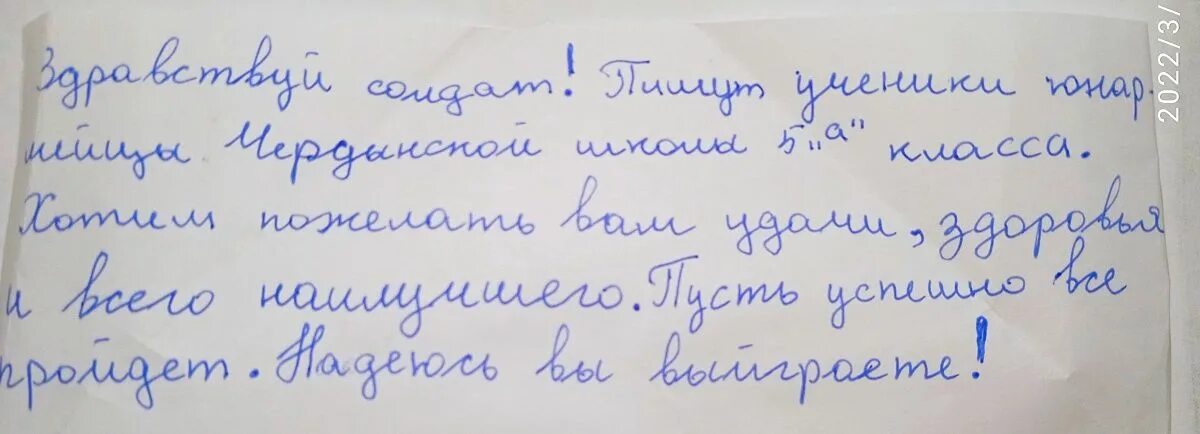 Здравствуй солдат! Пишут ученики юнар-
мейцы Чердынской школы 5 „а" класса.
Хотим пожелать вам удачи, здоровья
и всего наилучшего. Пусть успешно все
пройдет. Надеюсь вы выйграете!
2022/3/